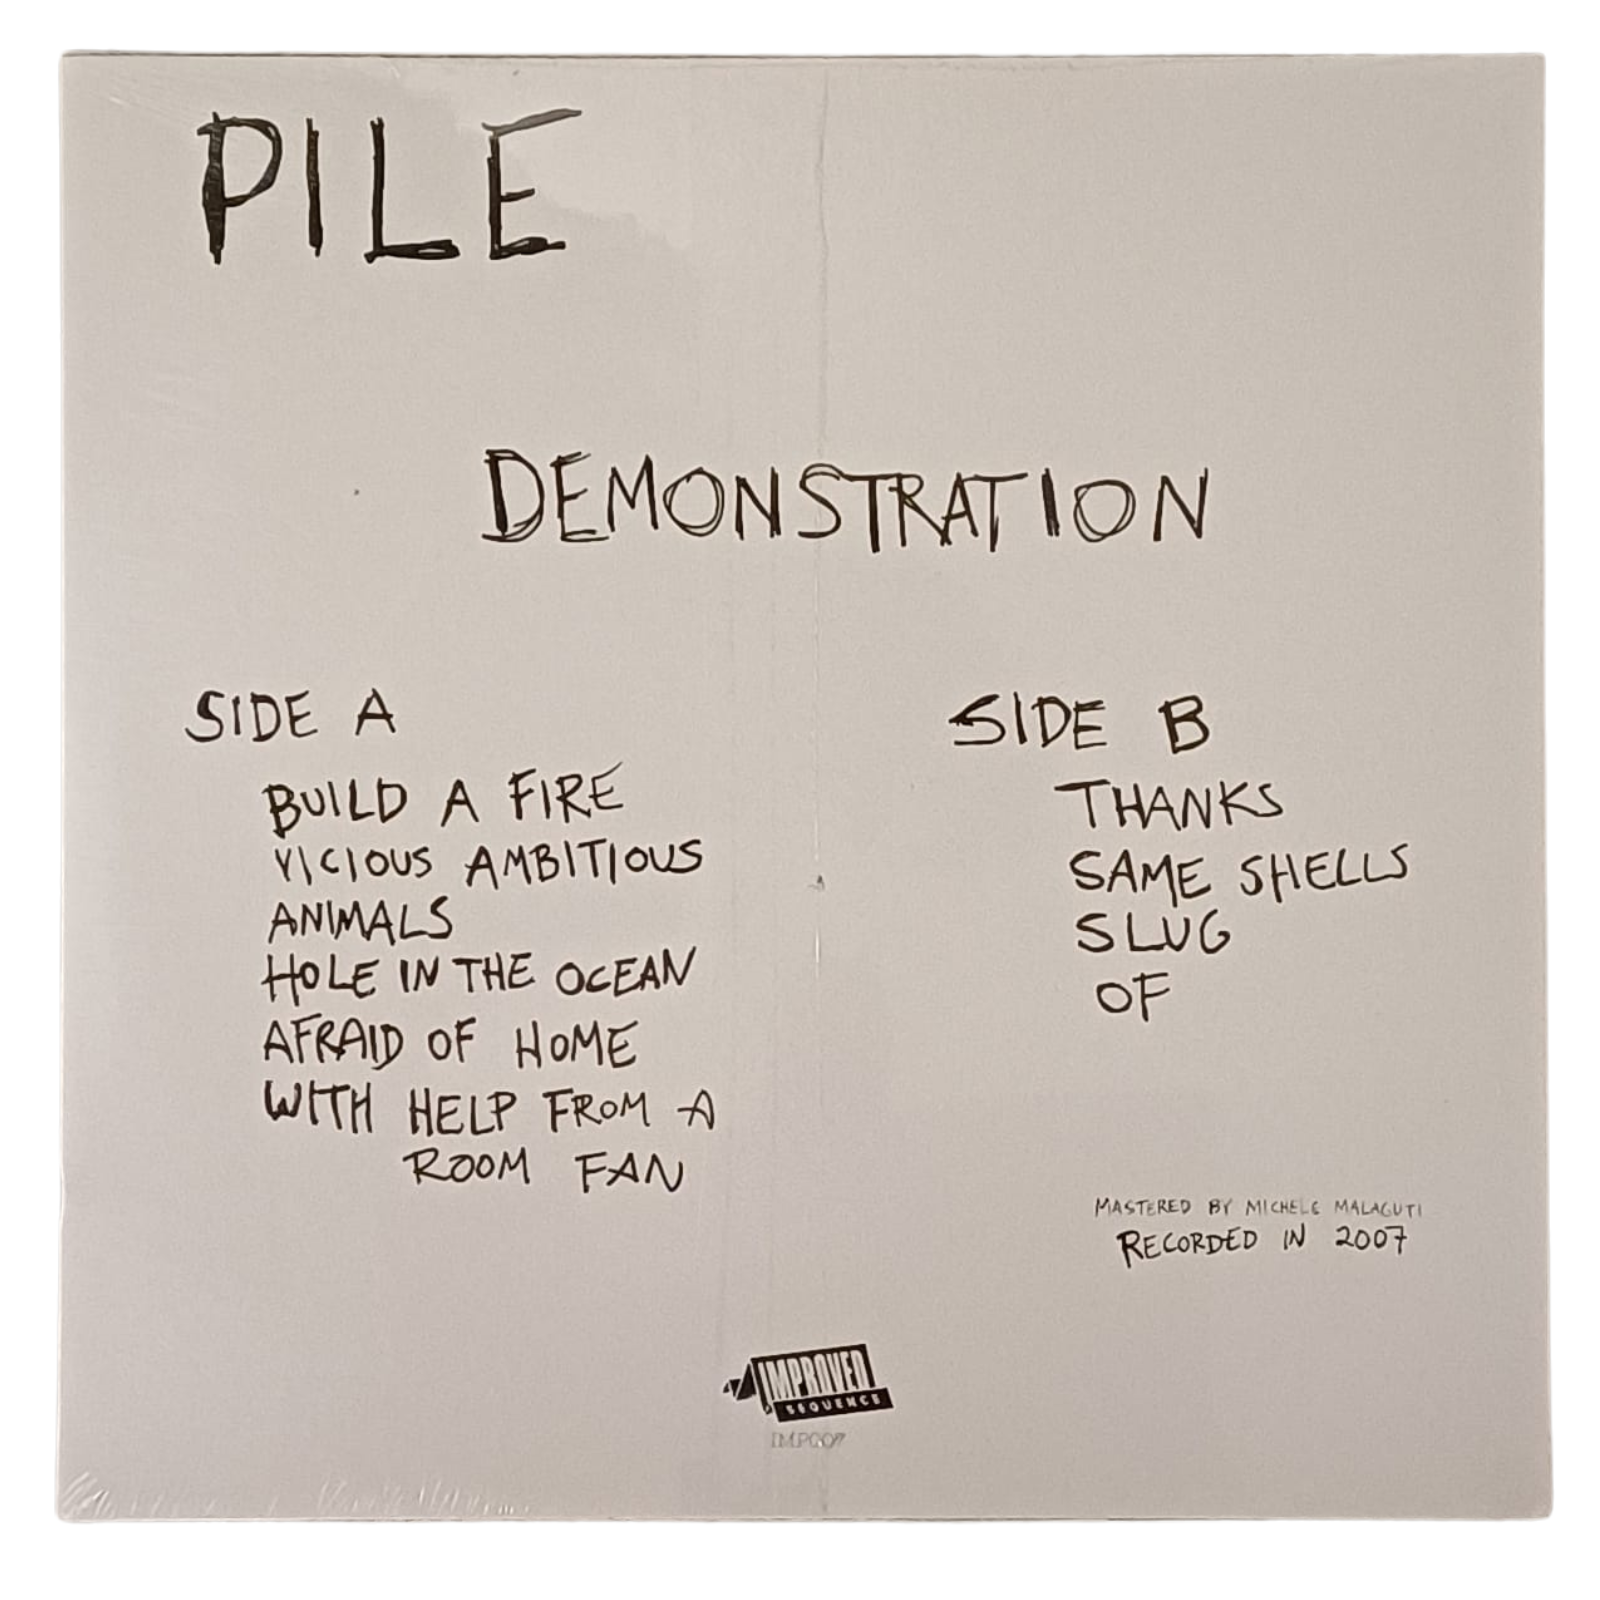 PILE
DEMONSTRATION
SIDE A
BUILD A FIRE
VICIOUS AMBITIOUS
ANIMALS
HOLE IN THE OCEAN
AFRAID OF HOME
WITH HELP FROM A
ROOM FAN
SIDE B
THANKS
SAME SHELLS
SLUG
OF
MASTERED BY MICHELE MALAGUTI
RECORDED IN 2007
IMPROVED
SEQUENCE
IMP007